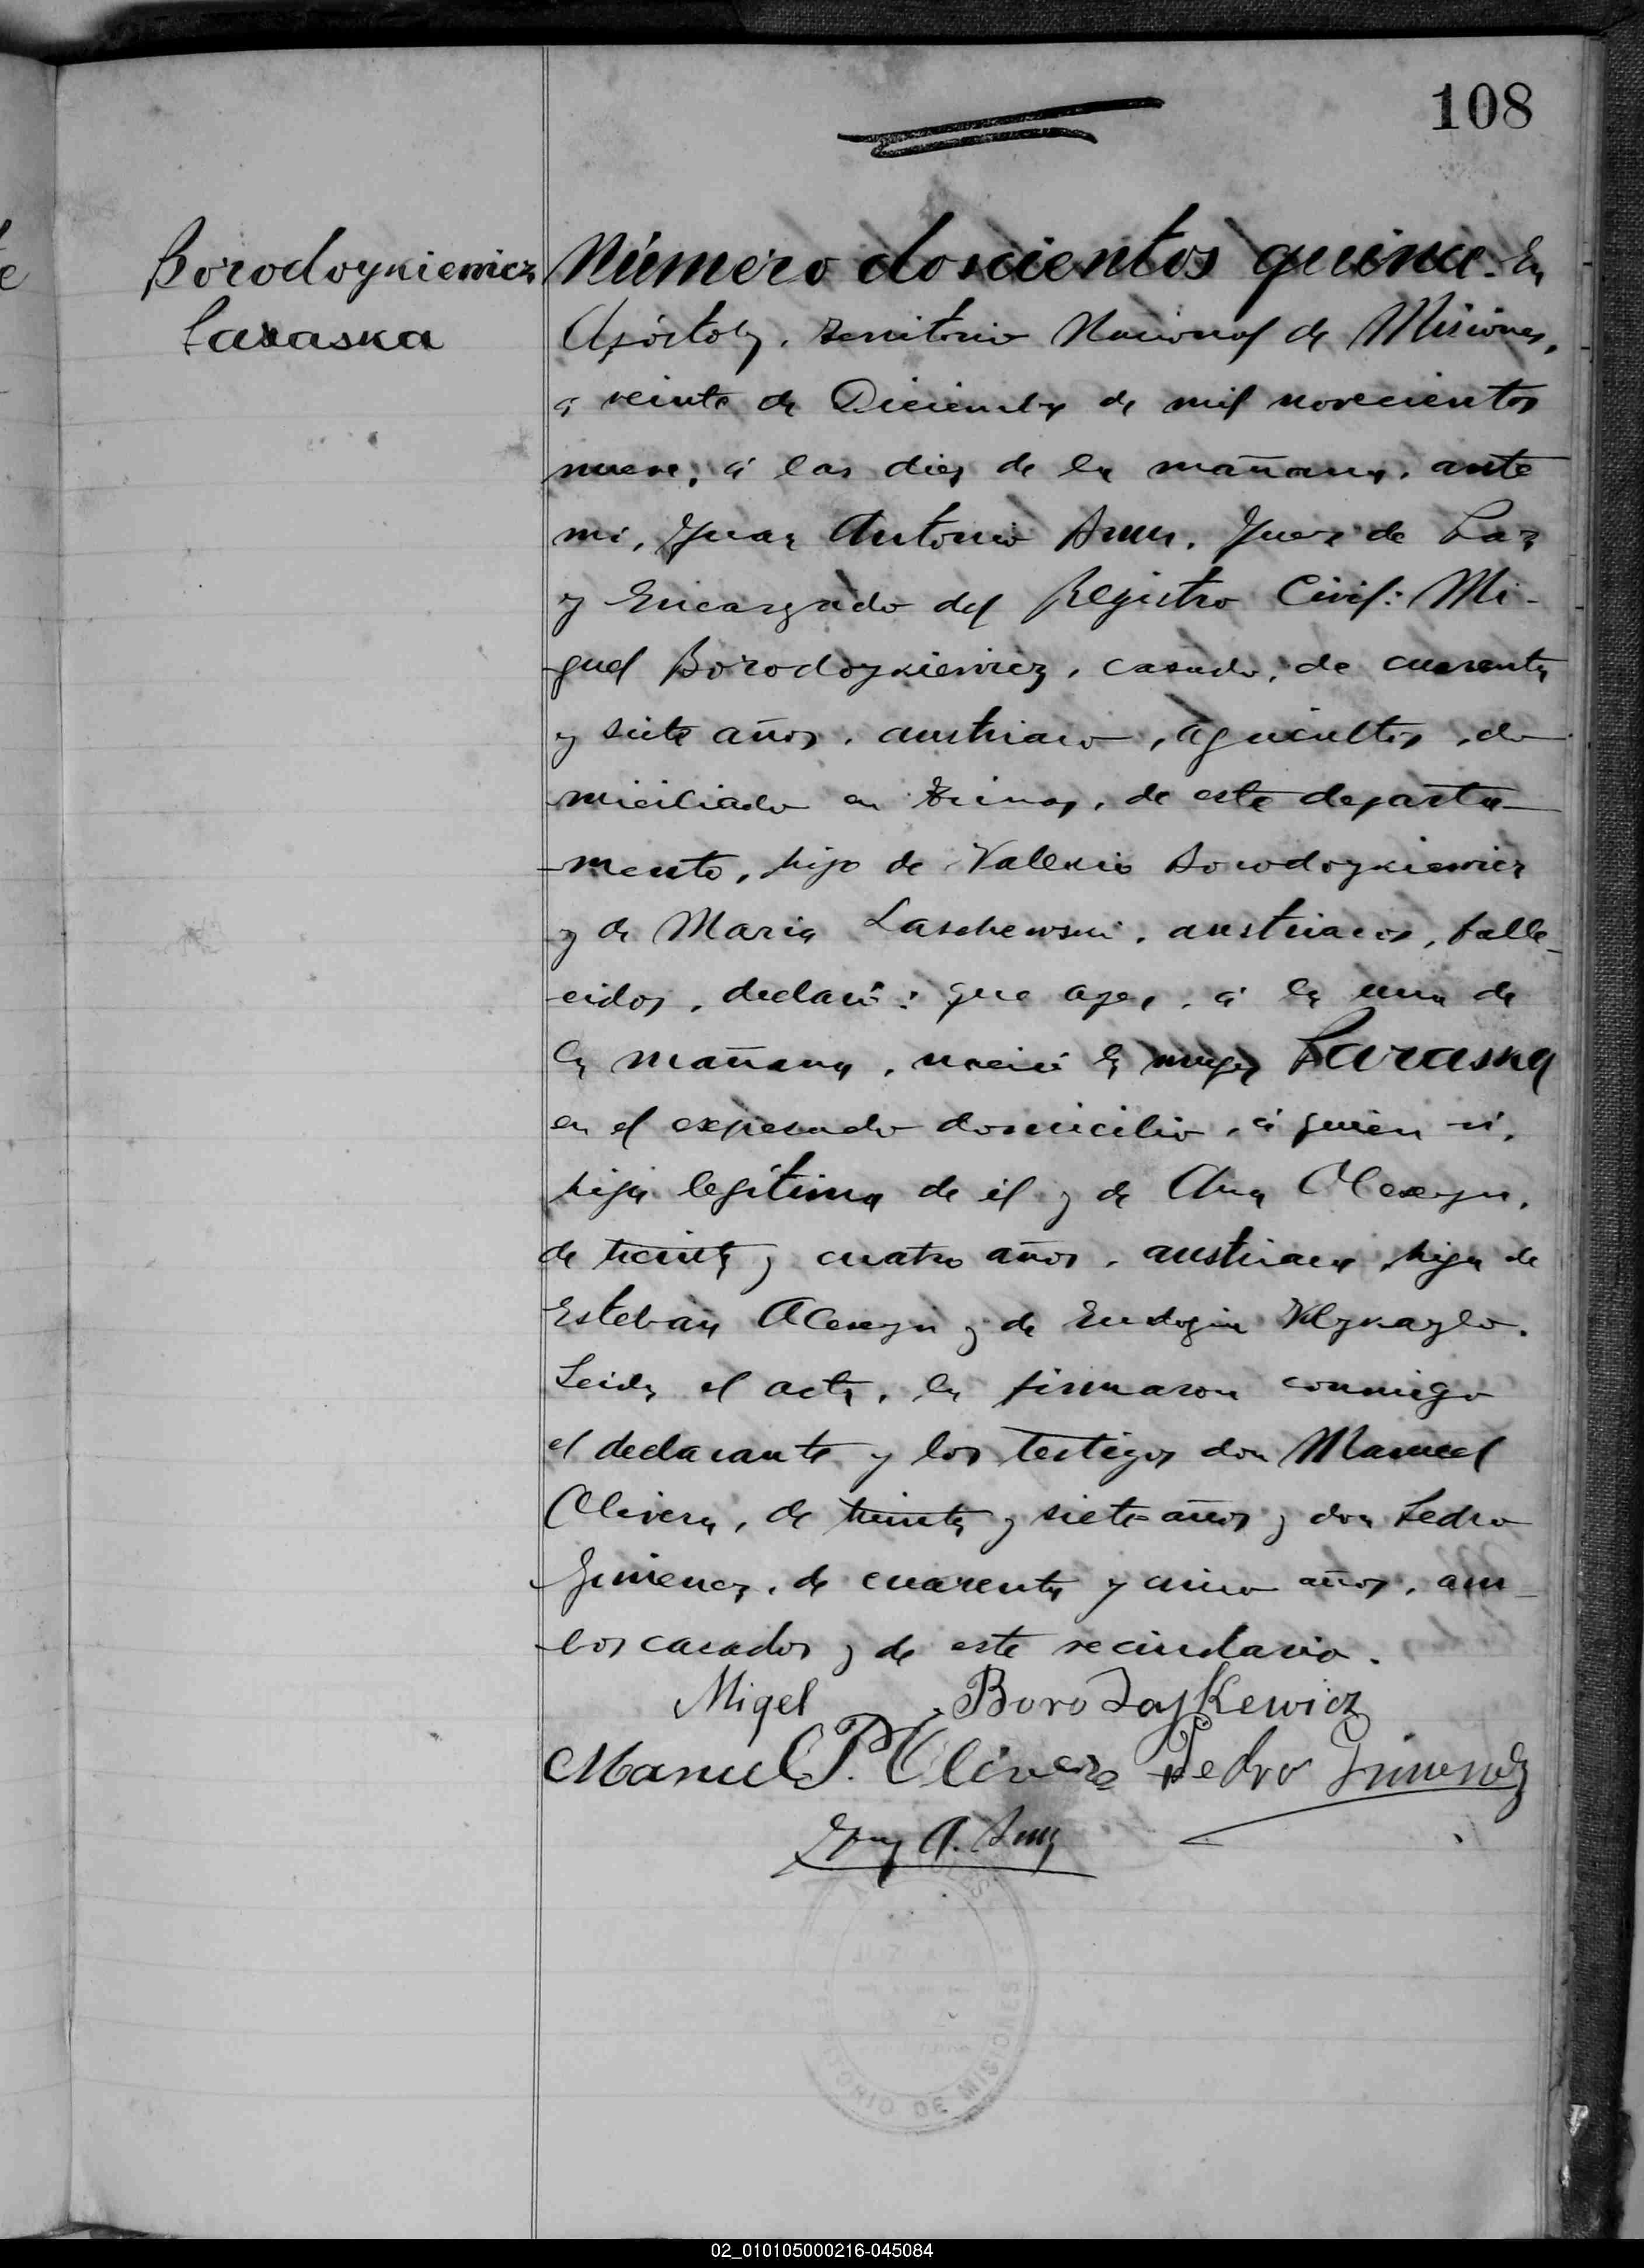 108
Borodoykiewicz
Paraska
Número doscientos quince. En
Apóstoles, Territorio Nacional de Misiones,
a veinte de Diciembre de mil novecientos
nueve, á las diez de la mañana, ante
mi, Juan Antonio Juez de Paz
y Encargado del Registro Civil: Mi-
guel Borodoykiewicz, casado, de cuarenta
y siete años, austriaco, agricultor, do
miciliado en de este departa-
mento, hijo de Valerio Borodoykiewicz
y de Maria austriacos, falle-
cidos, declaró: que ayer, á la una de
la mañana, nació la mujer Paraska
en el expresado domicilio, á quien ví,
hija legítima de él y de Ana
de treinta y cuatro años, austriaca, hija de
Esteban y de
Leida el acta, la firmaron conmigo
el declarante y los testigos don Manuel
Olivera, de treinta y siete años y don Pedro
Gimenez, de cuarenta y cinco años, am-
bos casados y de este vecindario.
Migel Borodaykewicz
Manuel P. Olivera Pedro Gimenez
Juan A.
TORIO DE MISIONES
02_010105000216-045084